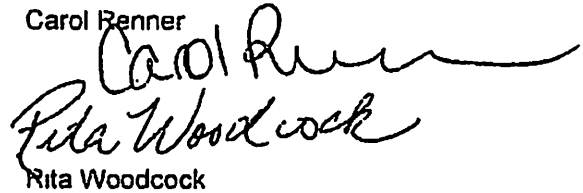 Carol Renner
Carol Renner
Rita Woodcock
Rita Woodcock